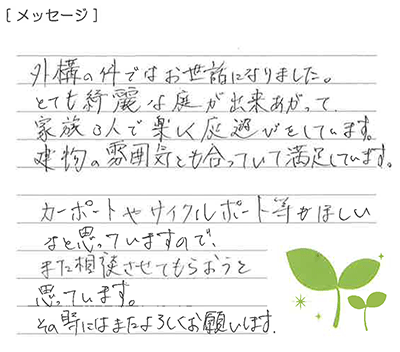 [メッセージ]
外構の件ではお世話になりました。
とても綺麗な庭が出来あがって、
家族3人で楽しく庭遊びをしています。
建物の雰囲気とも合っていて満足しています。
カーポートやサイクルポート等がほしい
なと思っていますので、
また相談させてもらおうと
思っています。
その際にはまたよろしくお願いします。